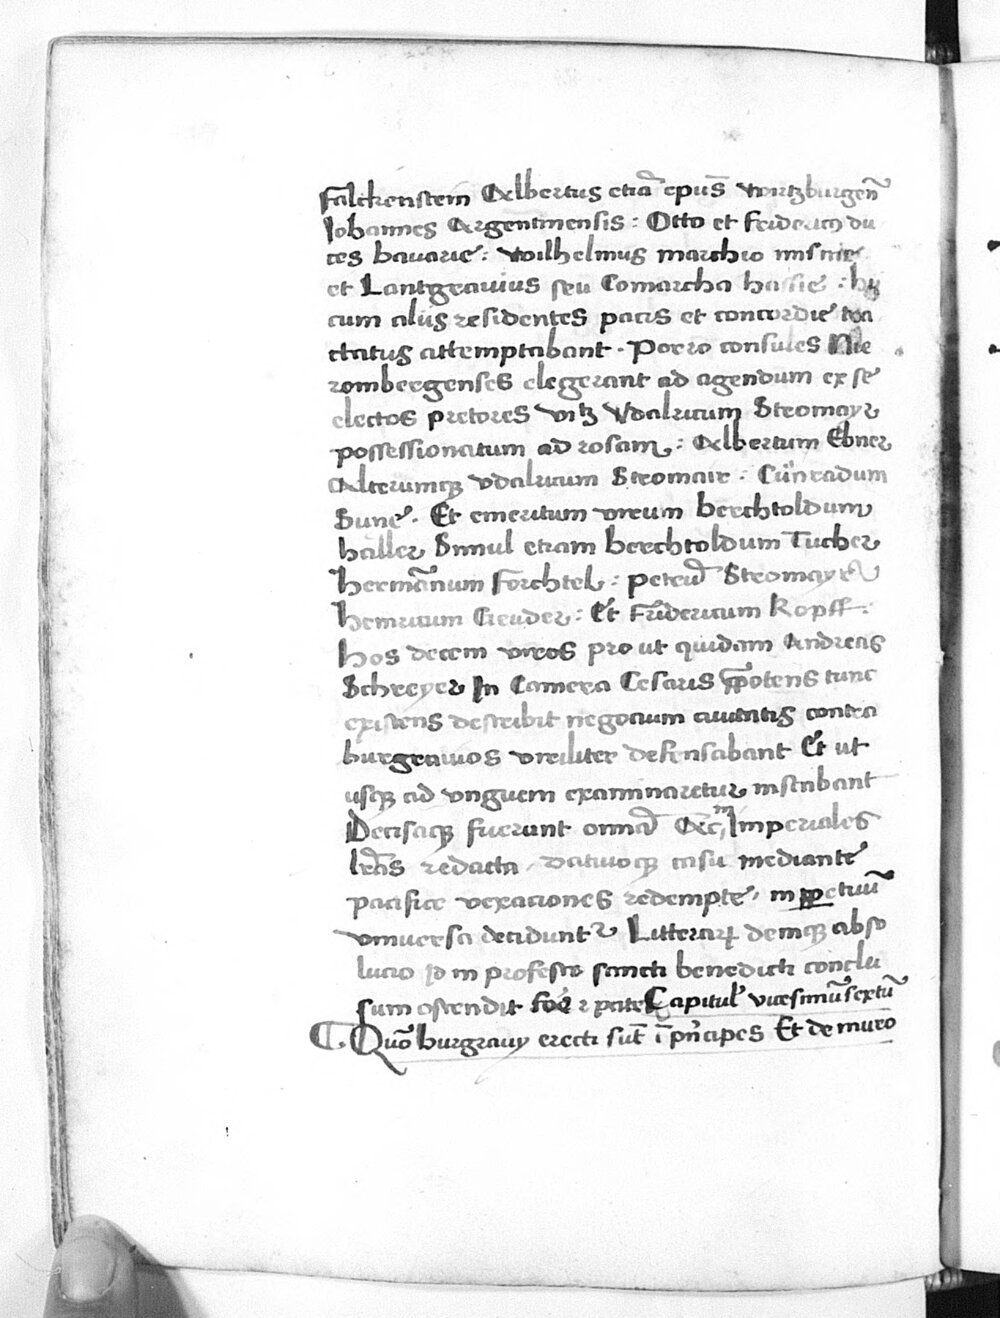 falckenstein Albertus etiā epus̄ wirtzburgen̄
Johannes Argentinensis : Otto et fridericꝯ du
ces bavarie : Wilhelmus marchio misnie
et Lantgravius seu Comarcha hassie : hy
cum aliis residentes pacis et concordie tra
ctatus attemptabant . Porro consules Nie
rombergenses elegerant ad agendum ex se
electos pretores vitz Vdalricum Stromayr
possessionatum ad rosam : Albertum Ebner
Alterumqꝫ vdalricum Stromair : Cůnradum
Sune . Et emeritum virum berchtoldum
haller Simul etiam berchtoldum Tucher
hermānum forchtel : petrū Stromayer
heinricum Geuder : Et fridericum Kopff :
hos decem viros pro ut quidam Andreas
Schreyer In Camera Cesaris p̄potens tunc
existens describit negocium civitatis contra
burgravios viriliter defensabant Et ut
usqꝫ ad vnguem examinaretur instabant
Decisaqꝫ fuerunt omā Ac in Imperiales
lrās redacta , dativoqꝫ casu mediante
pacifice vexaciones redempte , in ꝑpetuū
vniversa decidunt Litterarꝝ demqꝫ abso
lucio id in profesto sancti benedicti conclu
sum ostendit Capitul' vicesimū sextū
C. Quō burgravy erecti sūt ī pn̄cipes Et de muro